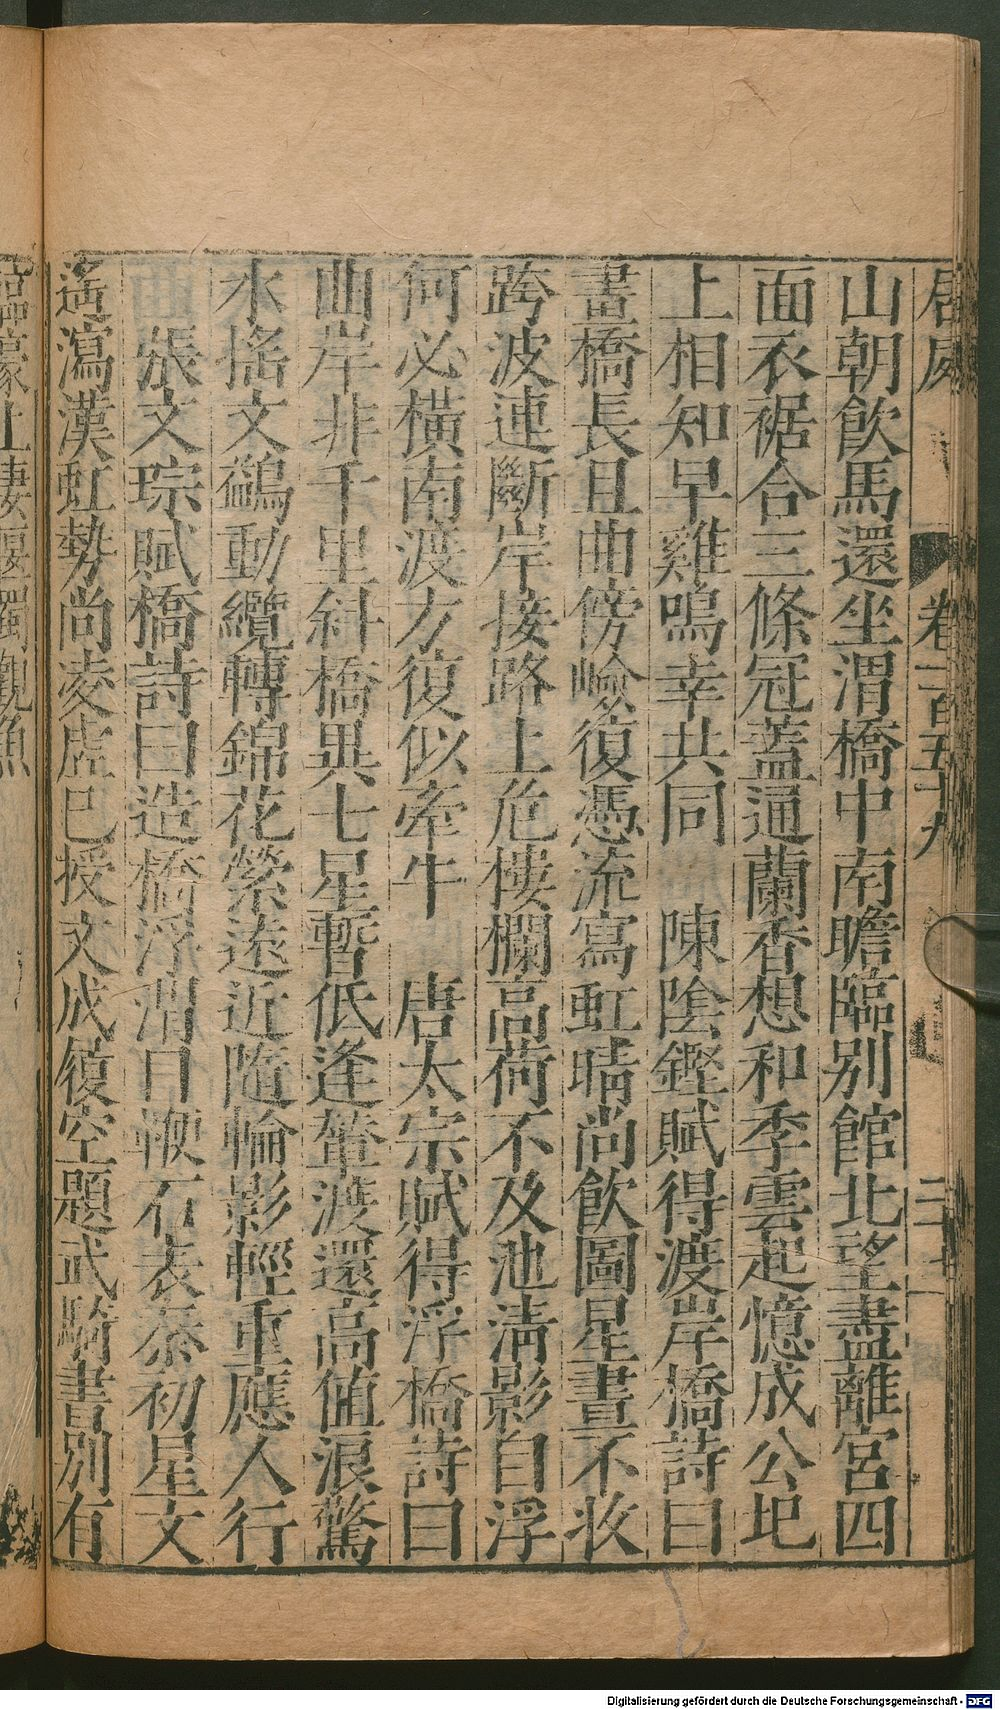 居處
卷一百五十九
二十一
山朝飲馬還坐渭橋中南瞻臨別館北望盡離宮四
面衣裾合三條冠蓋通蘭香想和季雲起憶成公圯
上相知早雞鳴幸共同　陳陰鏗賦得渡岸橋詩曰
畫橋長且曲傍嶮復憑流寫虹晴尚飲圖星晝不收
跨波連斷岸接路上危樓欄高荷不及池清影自浮
何必橫南渡方復似牽牛　唐太宗賦得浮橋詩曰
曲岸非千里斜橋異七星暫低逢輦渡還高值浪驚
水搖文鷁動纜轉錦花縈遠近隨輪影輕重應人行
張文琮賦橋詩曰造橋浮渭曰鞭石表秦初星文
遙瀉漢虹勢尚凌虛已授文成履空題武騎書別有
臨濠上棲遲獨觀魚
Digitalisierung gefördert durch die Deutsche Forschungsgemeinschaft - DFG